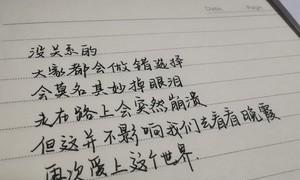 Date
Page
没关系的
大家都会做错选择
会莫名其妙掉眼泪
走在路上会突然崩溃
但这并不影响我们去看看晚霞
再次爱上这个世界.